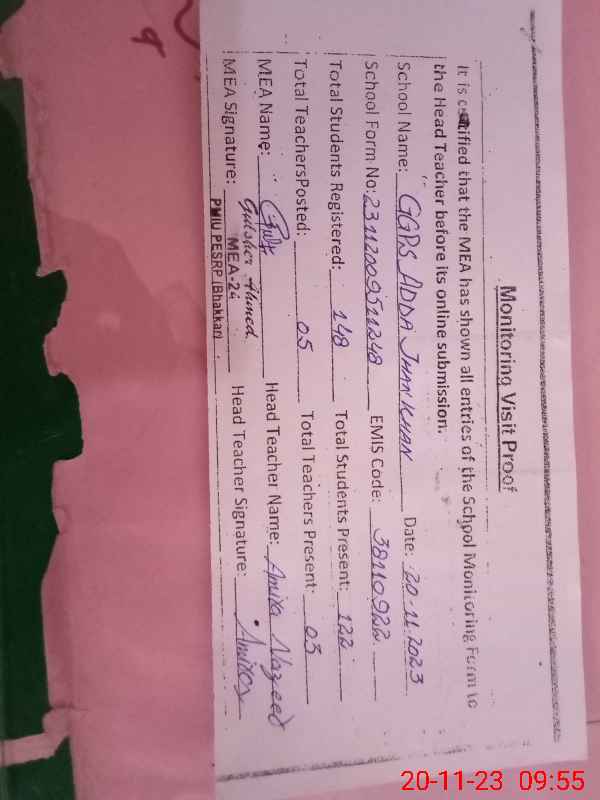 Monitoring Visit Proof
It is certified that the MEA has shown all entries of the School Monitoring Form to
the Head Teacher before its online submission.
School Name: GGPS ADDA JHAN KHAN Date: 20-11-2023
School Form No: EMIS Code: 38110922
Total Students Registered: 148 Total Students Present: 122
Total TeachersPosted: 05 Total Teachers Present: 03
MEA Name: Head Teacher Name: Amira
Gulsher Ahmed
MEA Signature: MEA-24 Head Teacher Signature:
PMIU PESRP (Bhakkar)
20-11-23 09:55